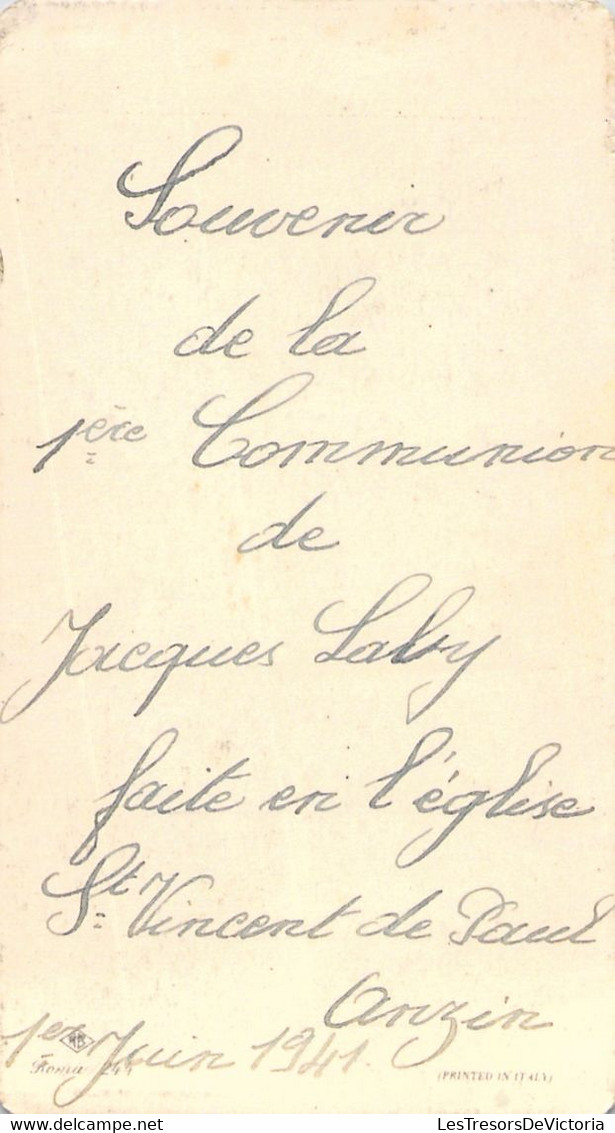 Souvenir
de la
1ère Communion
de
Jacques Laby
faite en l'église
St Vincent de Paul
Anzin
1er Juin 1941.
Roma 244
(PRINTED IN ITALY)
LesTresorsDeVictoria